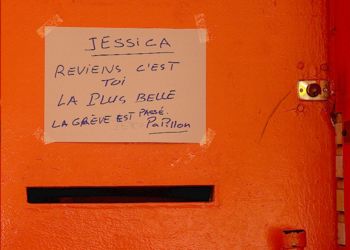 JESSICA
REVIENS C'EST
TOI
LA PLUS BELLE
LA GRÈVE EST PASSÉ.
PaPillon